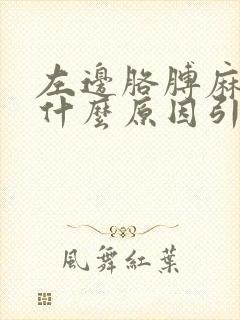 左邊胳膊麻
什麼原因引
風舞紅葉